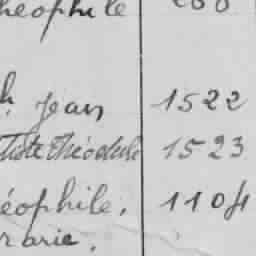 éophile
h. Jean 1522
tiste Théodule 1523
éophile. 1104
rarie.